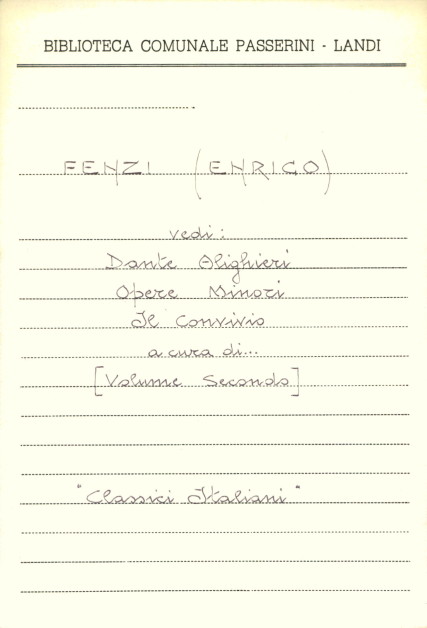 BIBLIOTECA COMUNALE PASSERINI - LANDI
FENZI (ENRICO)
vedi:
Dante Alighieri
Opere Minori
Il Convivio
a cura di...
[Volume Secondo]
"Classici Italiani"